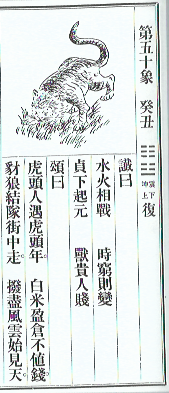 第五十象 癸丑 ䷗ 震下坤上 復
讖曰
水火相戰 時窮則變
貞下起元 獸貴人賤
頌曰
虎頭人遇虎頭年 白米盈倉不值錢
豺狼結隊街中走 撥盡風雲始見天